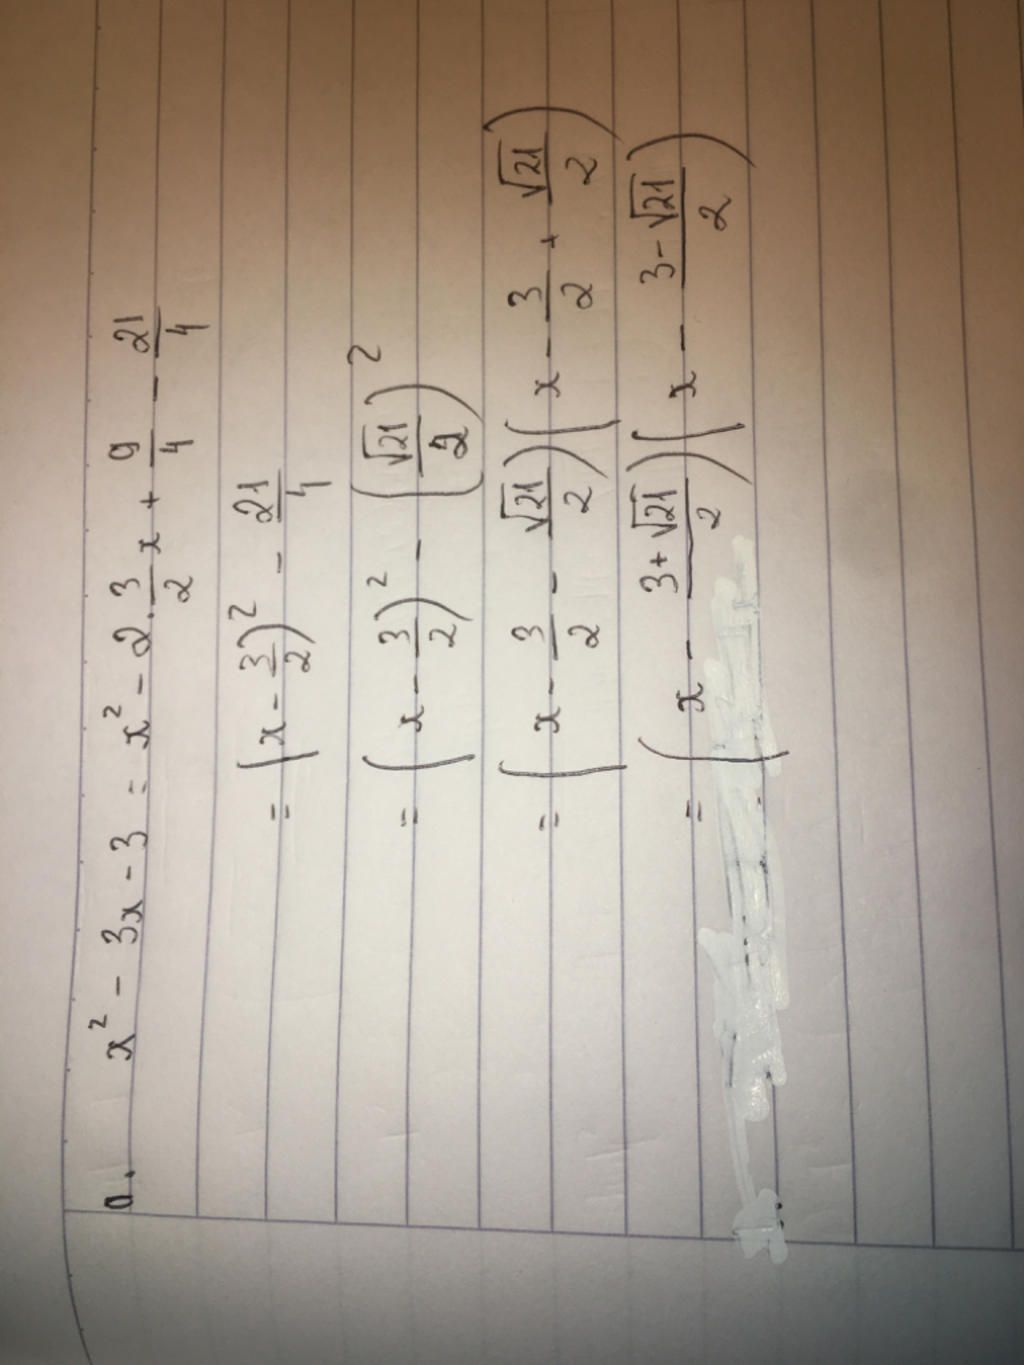 a. x² - 3x - 3 = x² - 2 · 3/2 x + 9/4 - 21/4
= (x - 3/2)² - 21/4
= (x - 3/2)² - (√21/2)²
= (x - 3/2 - √21/2)(x - 3/2 + √21/2)
= (x - (3+√21)/2)(x - (3-√21)/2)